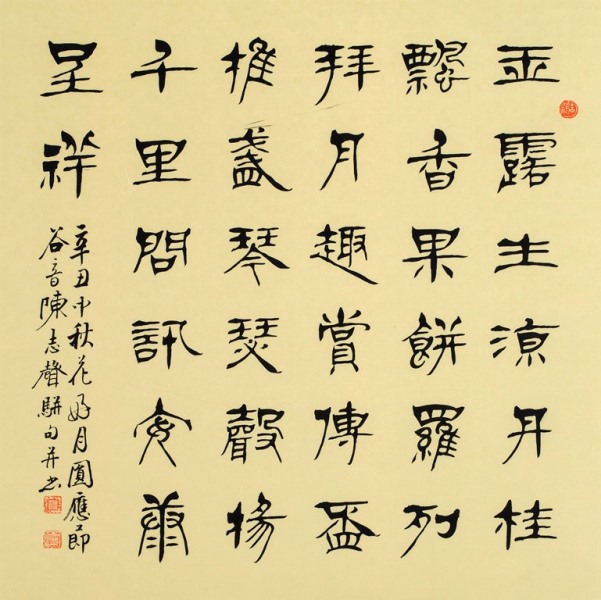 玉露生涼丹桂
飄香果餅羅列
拜月趣賞傳盃
推盞琴瑟聲揚
千里問訊安康
呈祥
辛丑中秋花好月圓應節
谷音陳志聲駢句并书